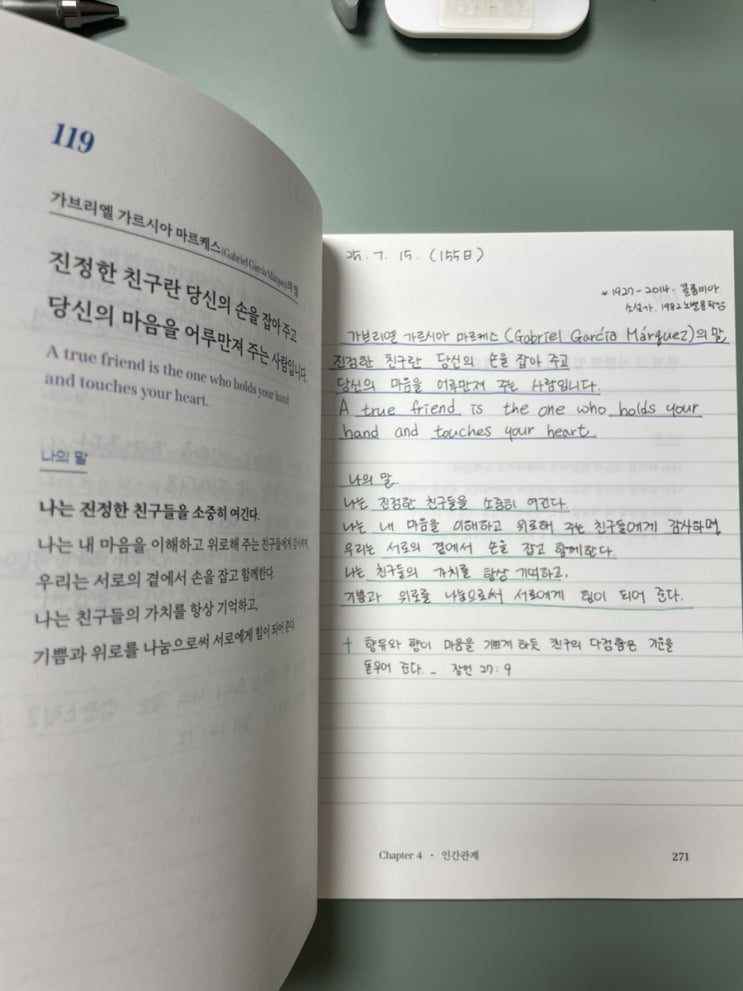 119
가브리엘 가르시아 마르케스(Gabriel García Márquez)의 말
진정한 친구란 당신의 손을 잡아 주고
당신의 마음을 어루만져 주는 사람입니다.
A true friend is the one who holds your hand
and touches your heart.
나의 말
나는 진정한 친구들을 소중히 여긴다.
나는 내 마음을 이해하고 위로해 주는 친구들에게 감사하며,
우리는 서로의 곁에서 손을 잡고 함께한다.
나는 친구들의 가치를 항상 기억하고,
기쁨과 위로를 나눔으로써 서로에게 힘이 되어 준다.
25. 7. 15. (155日)
* 1927-2014. 콜롬비아.
소설가. 1982 노벨문학상
가브리엘 가르시아 마르케스(Gabriel García Márquez)의 말
진정한 친구란 당신의 손을 잡아 주고
당신의 마음을 어루만져 주는 사람입니다.
A true friend is the one who holds your
hand and touches your heart.
나의 말
나는 진정한 친구들을 소중히 여긴다.
나는 내 마음을 이해하고 위로해 주는 친구들에게 감사하며,
우리는 서로의 곁에서 손을 잡고 함께한다.
나는 친구들의 가치를 항상 기억하고,
기쁨과 위로를 나눔으로써 서로에게 힘이 되어 준다.
† 향유와 향이 마음을 기쁘게 하듯 친구의 다정함은 기운을
돋우어 준다. _ 잠언 27:9
Chapter 4 · 인간관계
271